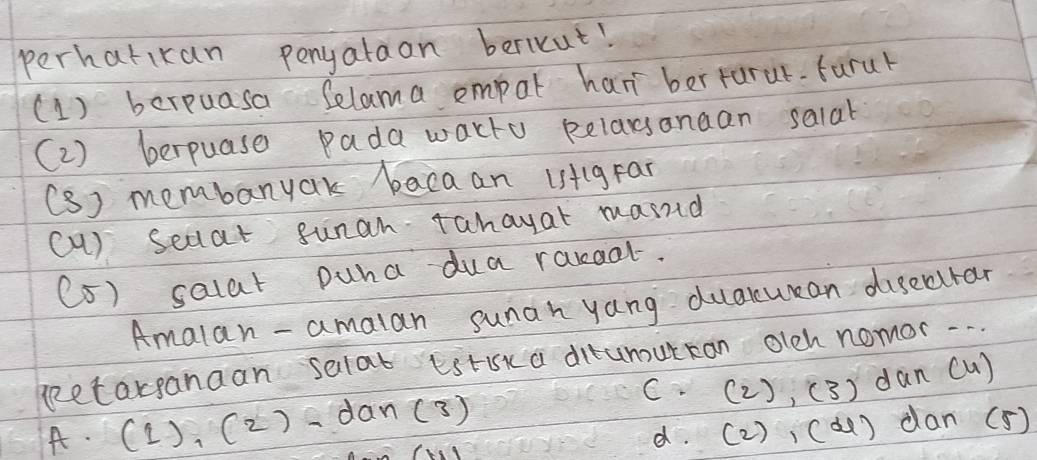 perhatikan penyataan berikut!
(1) berpuasa selama empat hari berturut-turut
(2) berpuasa pada waktu pelaksanaan salat
(3) membanyak bacaan istigfar
(4) selat sunah tahayat masjid
(5) salat Duha dua rakaat.
Amalan-amalan sunah yang dilakukan disekitar
pelaksanaan salat istiska ditunjukkan oleh nomor ...
A. (1), (2), dan (3)
C. (2), (3) dan (4)
d. (2), (4) dan (5)